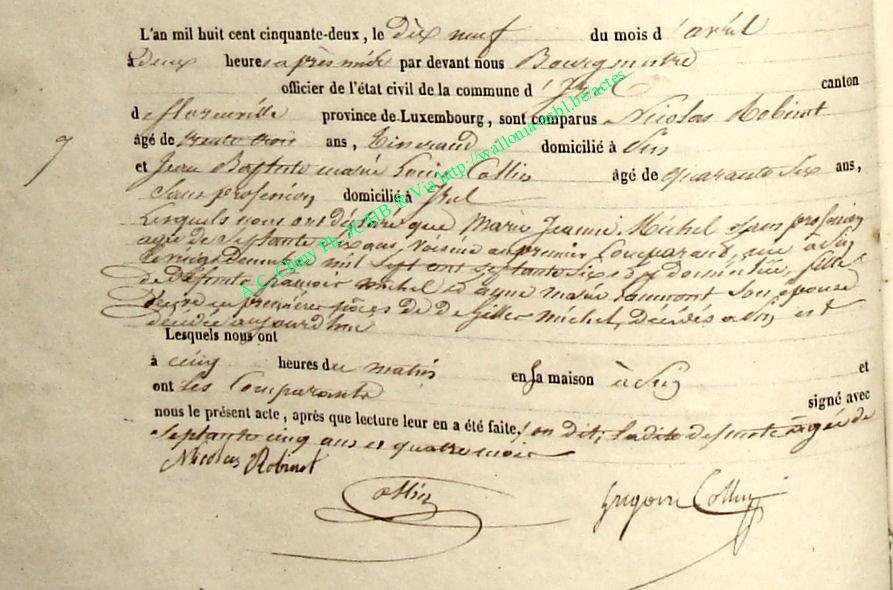 L'an mil huit cent cinquante-deux, le dix neuf du mois d'avril
à deux heures après midi par devant nous Bourgmestre
officier de l'état civil de la commune d'Izel canton
de florenville province de Luxembourg, sont comparus Nicolas Robinot
âgé de trente trois ans, Tisserand domicilié à
et Jean Baptiste marie Collin âgé de quarante six ans,
Sans profession domicilié à Izel
Lesquels nous ont déclaré que Marie Jeanne Michel Sans profession
agée de Septante ans, Voisine au premier Comparant, née à
le mil Sept cent Septante Six et y domiciliée, fille
de Défunts françois michel et anne marie Son épouse
en premières noces de Gilles michel, Décédés à est
décédée aujourd'hui
Lesquels nous ont
à cinq heures du matin en sa maison à et
ont Les Comparants signé avec
nous le présent acte, après que lecture leur en a été faite, on dit, Ladite defunte agée de
Septante cinq ans et quatre mois
Nicolas Robinot
Collin Grégoire Collin
A.C. Chiny Ph. Via http://wallonia-asbl.be/actes
7